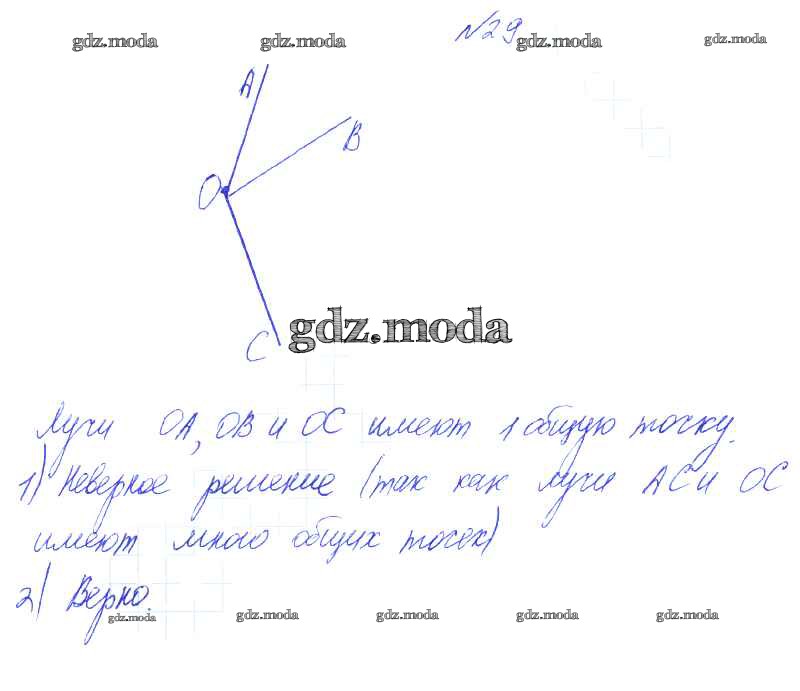 №29
gdz.moda gdz.moda gdz.moda gdz.moda
A
B
O
gdz.moda
C
Лучи OA, OB и OC имеют 1 общую точку.
1) Неверное решение (так как лучи AC и OC
имеют много общих точек)
2) Верно.
gdz.moda gdz.moda gdz.moda gdz.moda gdz.moda